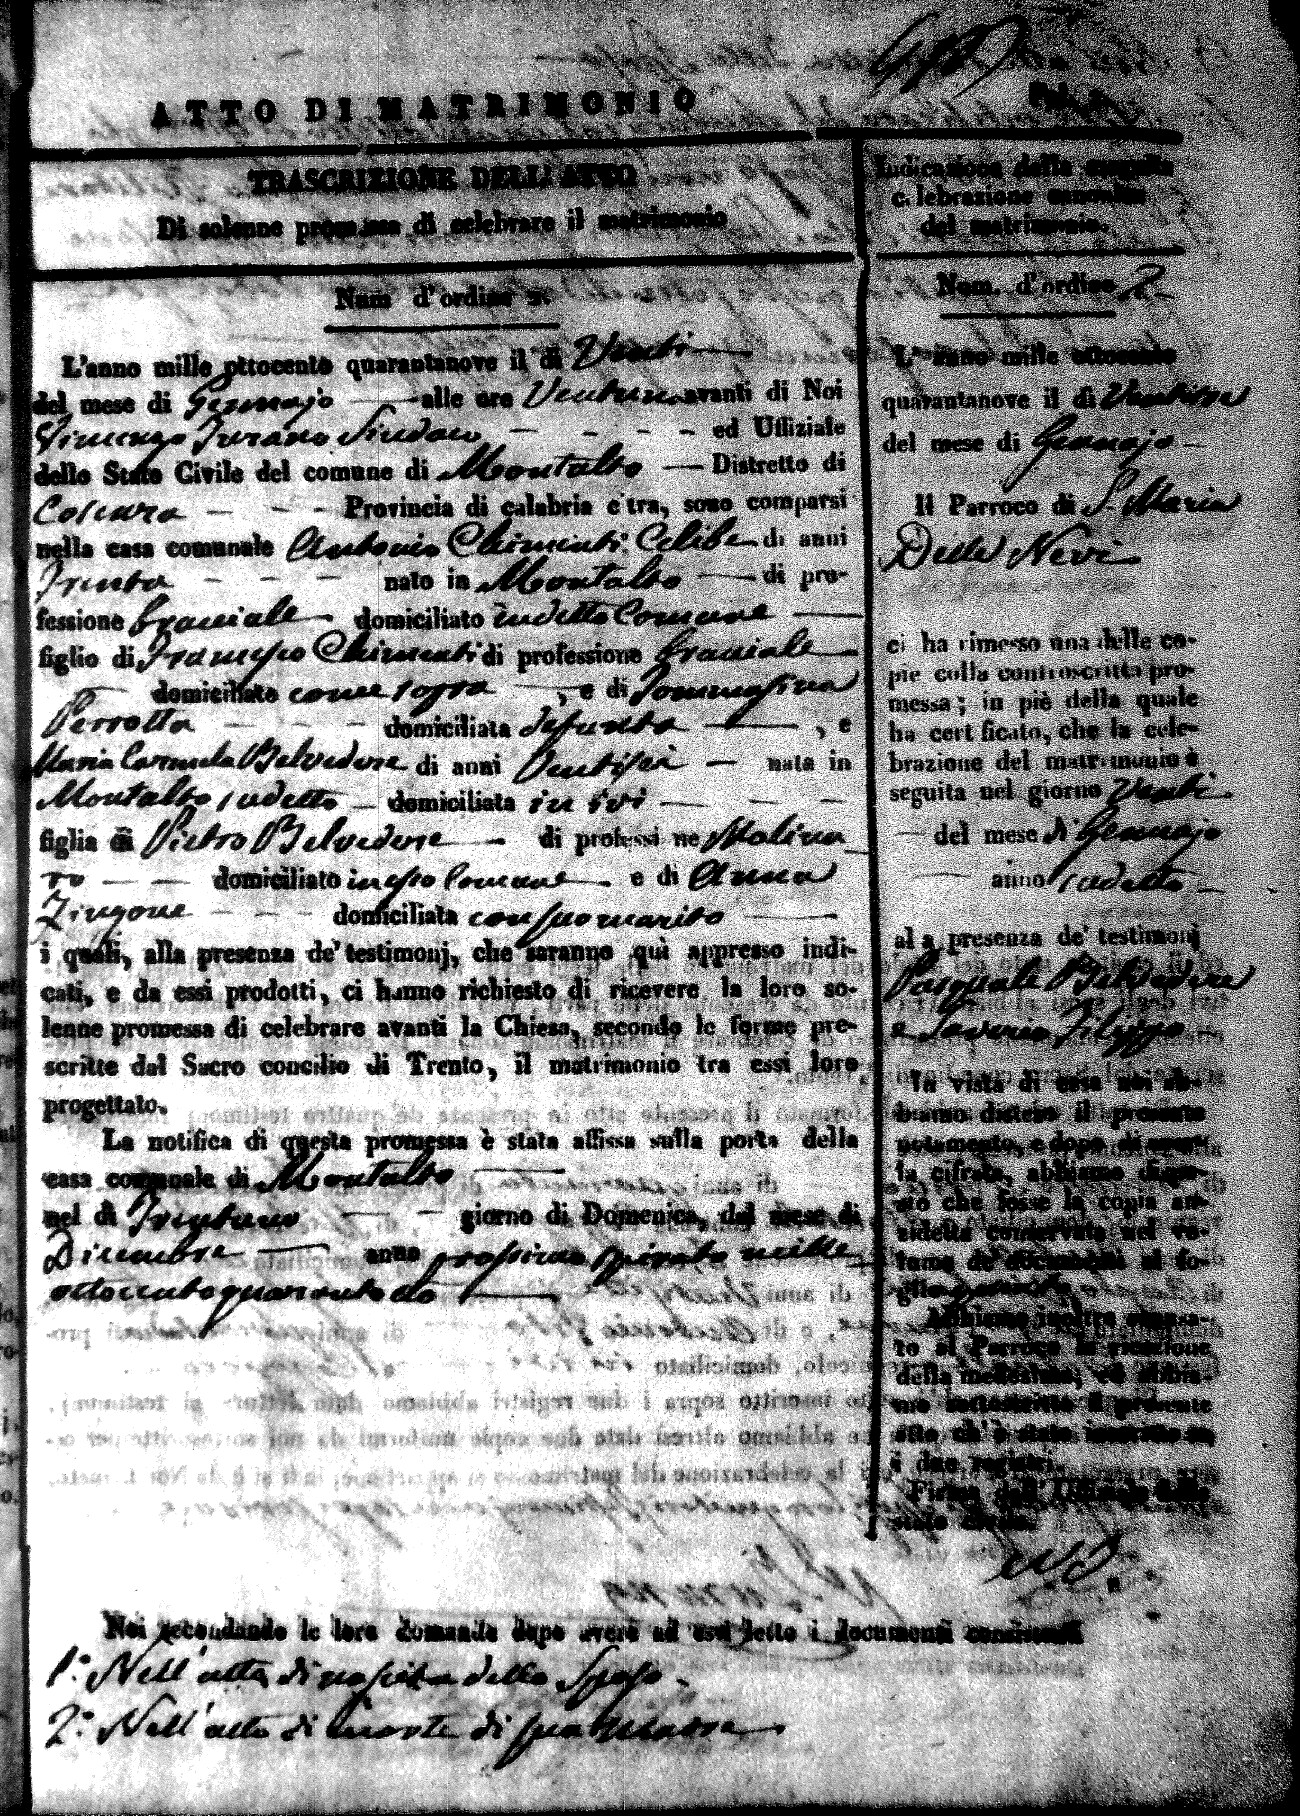 ATTO DI MATRIMONIO
TRASCRIZIONE DELL' ATTO
Di solenne promessa di celebrare il matrimonio
Num d'ordine 2.
L'anno mille ottocento quarantanove il dì Venti
del mese di Gennajo alle ore Ventuno avanti di Noi
Vincenzo Turano Sindaco ed Uffiziale
dello Stato Civile del comune di Montalto Distretto di
Cosenza Provincia di calabria citra, sono comparsi
nella casa comunale Antonio Chimenti Celibe di anni
Trenta nato in Montalto di pro-
fessione bracciale domiciliato in detto Comune
figlio di Francesco Chimenti di professione bracciale
domiciliato come sopra, e di Tommasina
Perrotta domiciliata defunta, e
Maria Carmela Belvedere di anni Ventisei nata in
Montalto sudetto domiciliata in ivi
figlia di Pietro Belvedere di professione Molina
ro domiciliato in esso Comune e di Anna
Zingone domiciliata con suo marito
i quali, alla presenza de' testimonj, che saranno quì appresso indi-
cati, e da essi prodotti, ci hanno richiesto di ricevere la loro so-
lenne promessa di celebrare avanti la Chiesa, secondo le forme pre-
scritte dal Sacro concilio di Trento, il matrimonio tra essi loro
progettato.
La notifica di questa promessa è stata affissa sulla porta della
casa comunale di Montalto
nel dì Trentuno giorno di Domenica, del mese di
Dicembre anno prossimo spirato mille
ottocentoquarantotto
Noi secondando le loro domande dopo avere ad essi letto i documenti consistenti
1.° Nell'atto di nascita dello Sposo.
2.° Nell'atto di morte di sua Madre
Indicazione della seguita
celebrazione canonica
del matrimonio.
Num. d'ordine 2
L'anno mille ottocento
quarantanove il dì
del mese di Gennajo
Il Parroco di S. Maria
Delle Nevi
ci ha rimesso una delle co-
pie colla controscritta pro-
messa; in piè della quale
ha certificato, che la cele-
brazione del matrimonio è
seguita nel giorno Venti
del mese di Gennajo
anno sudetto
alla presenza de' testimonj
Pasquale Belvedere
e Saverio Filippo
In vista di essa noi ab-
biamo disteso il presente
notamento, e dopo di aver-
la cifrata, abbiamo dispo-
sto che fosse la copia an-
zidetta conservata nel vo-
lume de' documenti al fo-
glio
Abbiamo inoltre accusa-
to al Parroco la ricezione
della medesima, ed abbia-
mo sottoscritto il presente
atto, ch'è stato inscritto su
i due registri.
Firma dell'Uffiziale dello
stato civile.